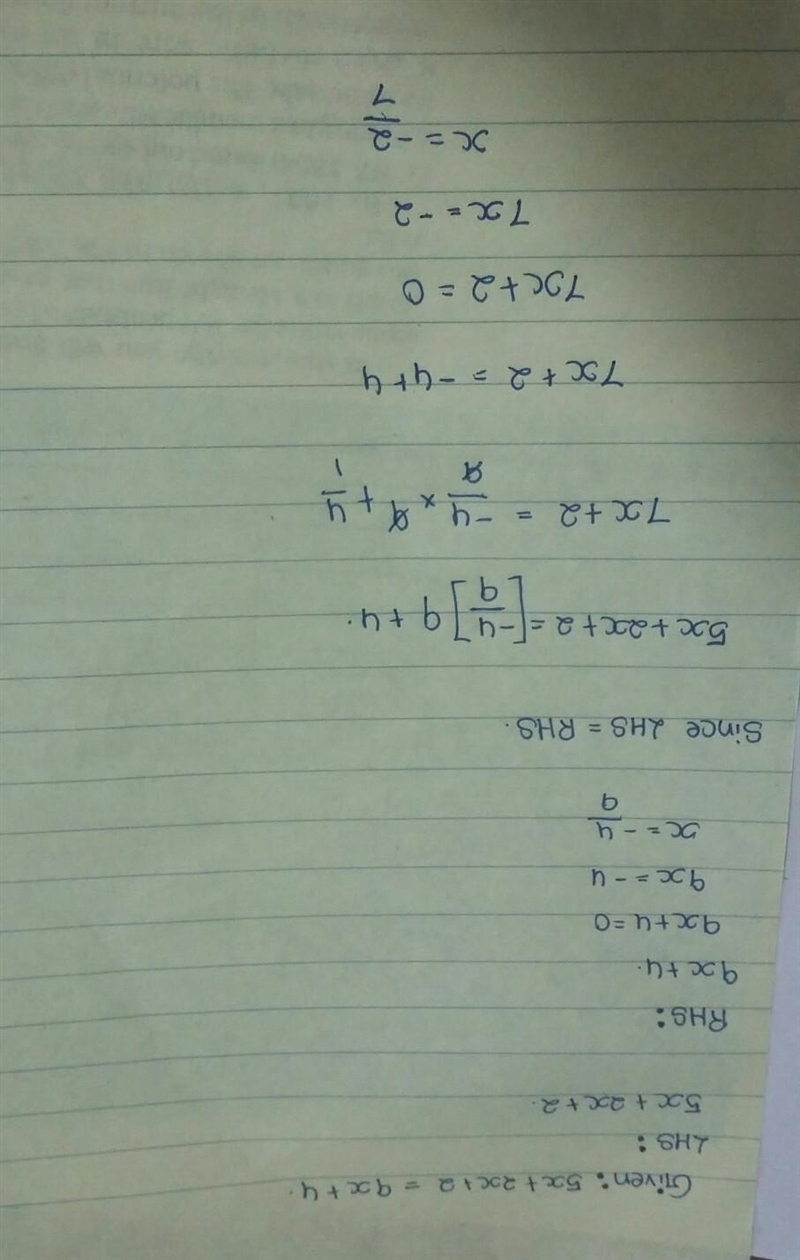 Given: 5x + 2x + 2 = 9x + 4.
LHS:
5x + 2x + 2.
RHS:
9x + 4.
9x + 4 = 0
9x = -4
x = -4/9
Since LHS = RHS.
5x + 2x + 2 = [-4/9] 9 + 4.
7x + 2 = -4/9 × 9 + 4/1
7x + 2 = -4 + 4
7x + 2 = 0
7x = -2
x = -2/7